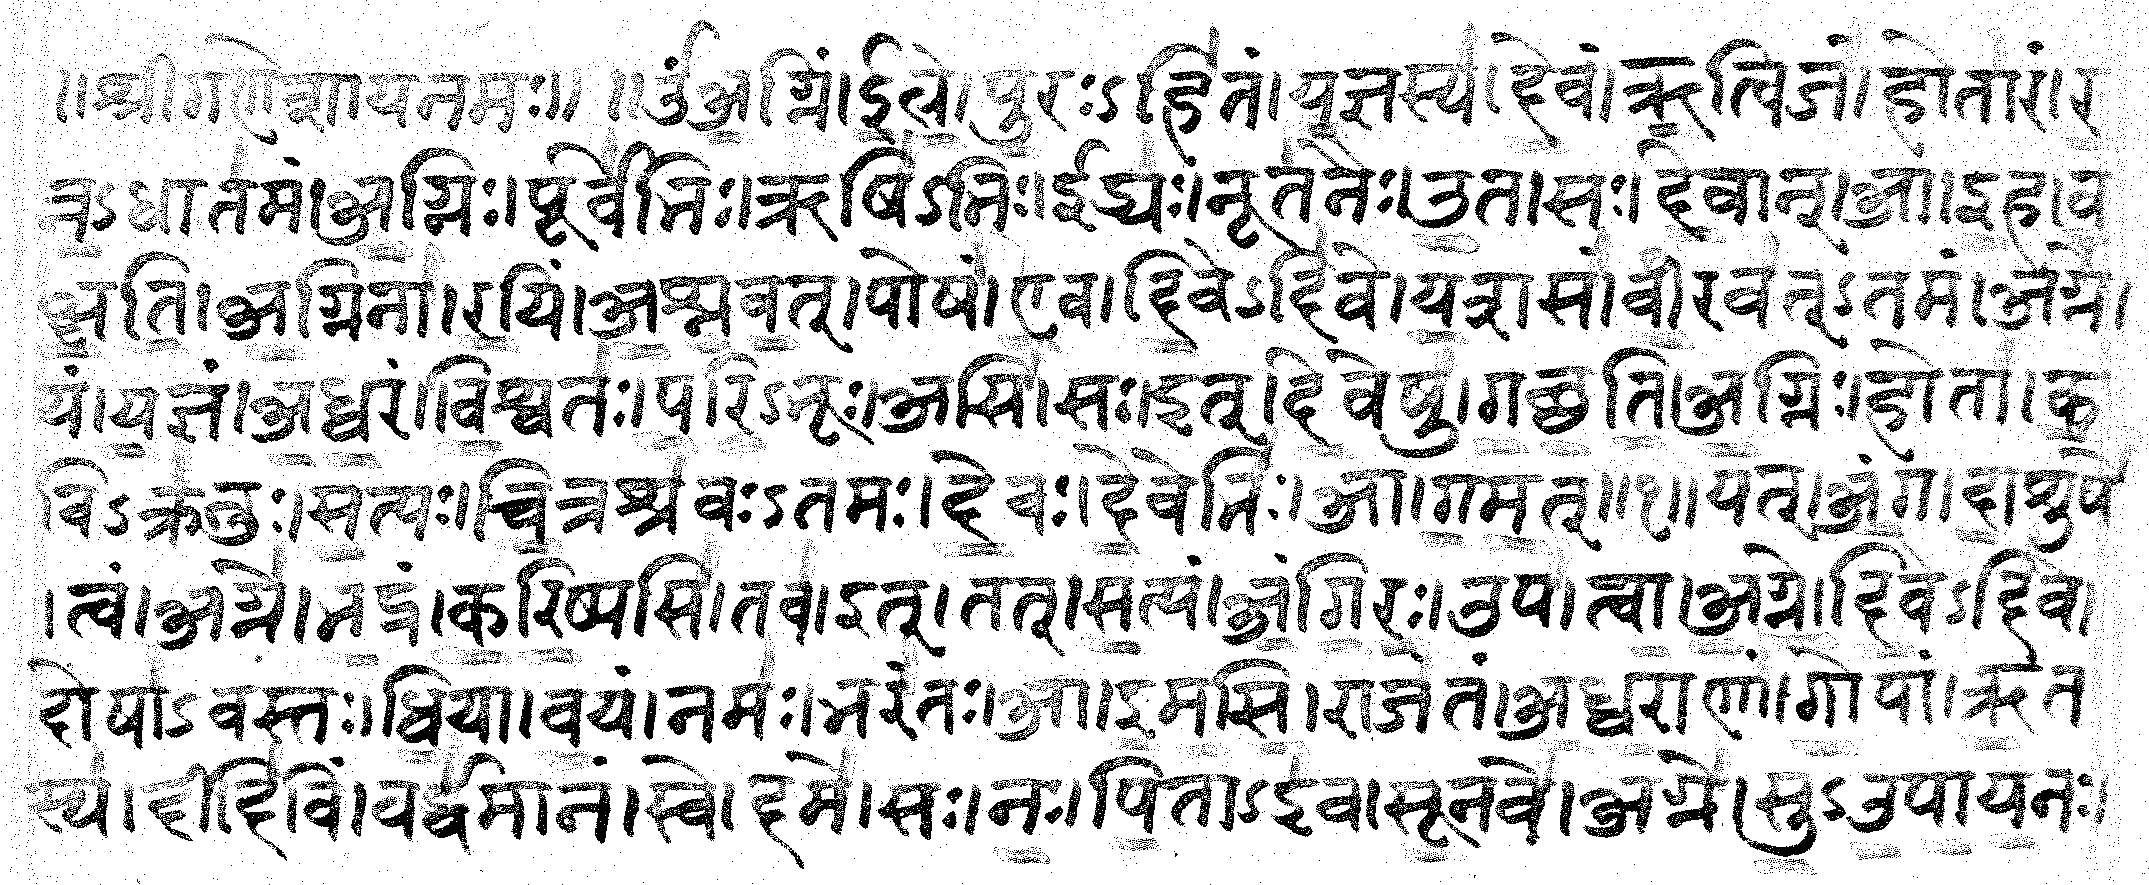 ॥श्रीगणेशायनमः॥ ॥ॐअग्निं।ईळे।पुरःऽहितं।यज्ञस्य।देवं।ऋत्विजं।होतारं।र
त्नऽधातमं।अग्निः।पूर्वेभिः।ऋषिऽभिः।ईड्यः।नूतनैः।उत।सः।देवान्।आ।इह।व
क्षति।अग्निना।रयिं।अश्नवत्।पोषं।एव।दिवेऽदिवे।यशसं।वीरवत्ऽतमं।अग्ने।
यं।यज्ञं।अध्वरं।विश्वतः।परिऽभूः।असि।सः।इत्।देवेषु।गच्छति।अग्निः।होता।क
विऽक्रतुः।सत्यः।चित्रश्रवःऽतमः।देवः।देवेभिः।आ।गमत्॥१॥यत्।अंग।दाशुषे
।त्वं।अग्ने।भद्रं।करिष्यसि।तव।इत्।तत्।सत्यं।अंगिरः।उप।त्वा।अग्ने।दिवेऽदिवे।
दोषाऽवस्तः।धिया।वयं।नमः।भरंतः।आ।इमसि।राजंतं।अध्वराणां।गोपां।ऋत
स्य।दीदिविं।वर्धमानं।स्वे।दमे।सः।नः।पिताऽइव।सूनवे।अग्ने।सुऽउपायनः।